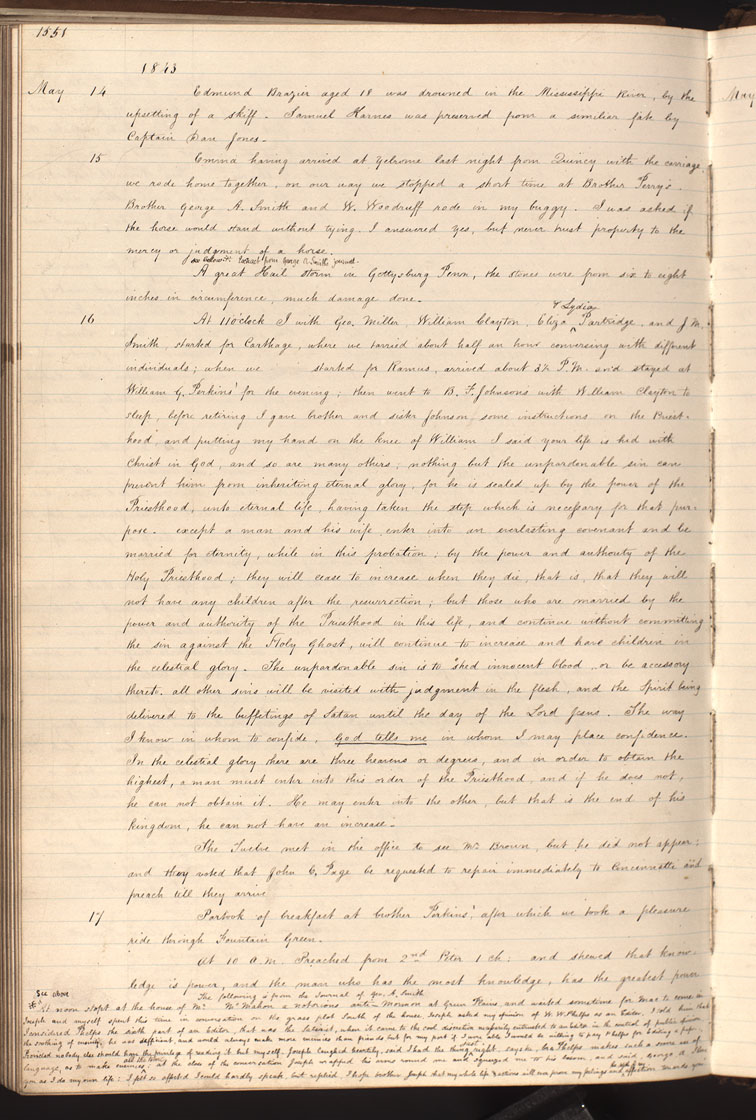 1551
1843
May 14 Edmund Brazier aged 18 was drowned in the Mississippi River, by the
upsetting of a skiff. Samuel Harnes was preserved from a similiar fate by
Captain Dan Jones.
15 Emma having arrived at Yelrome last night from Quincy with the carriage,
we rode home together, on our way we stopped a short time at Brother Perry's.
Brother George A. Smith and W. Woodruff rode in my buggy. I was asked if
the horse would stand without tying. I answered yes, but never trust property to the
mercy or judgment of a horse.
see below * Extract from George A. Smith's journal.
A great Hail storm in Gettysburg Penn, the stones were from six to eight
inches in circumference, much damage done.
& Lydia
16 At 11 o'clock I with Geo. Miller, William Clayton, Eliza ^ Partridge, and J. M.
Smith, started for Carthage, where we tarried about half an hour conversing with different
individuals; when we started for Ramus, arrived about 3½ P.M. and stayed at
William G. Perkins' for the evening; then went to B. F. Johnsons with William Clayton to
sleep, before retiring I gave brother and sister Johnson some instructions on the Priest-
hood; and putting my hand on the knee of William I said your life is hid with
Christ in God, and so are many others; nothing but the unpardonable sin can
prevent him from inheriting eternal glory, for he is sealed up by the power of the
Priesthood, unto eternal life, having taken the step which is necessary for that pur-
pose. except a man and his wife enter into an everlasting covenant and be
married for eternity, while in this probation; by the power and authority of the
Holy Priesthood; they will cease to increase when they die, that is, that they will
not have any children after the resurrection; but those who are married by the
power and authority of the Priesthood in this life, and continue without committing
the sin against the Holy Ghost, will continue to increase and have children in
the celestial glory. The unpardonable sin is to shed innocent blood, or be accessory
thereto. all other sins will be visited with judgment in the flesh, and the Spirit being
delivered to the buffetings of Satan until the day of the Lord Jesus. The way
I know in whom to confide, God tells me in whom I may place confidence.
In the celestial glory there are three heavens or degrees, and in order to obtain the
highest, a man must enter into this order of the Priesthood, and if he does not,
he can not obtain it. He may enter into the other, but that is the end of his
kingdom, he can not have an increase.
The Twelve met in the office to see Mr Brown, but he did not appear;
and they voted that John E. Page be requested to repair immediately to Cincinnatti and
preach till they arrive
17 Partook of breakfast at brother Perkins', after which we took a pleasure
ride through Fountain Green.
At 10 A.M. Preached from 2nd Peter 1 ch: and shewed that know-
ledge is power, and the man who has the most knowledge, has the greatest power
See above
The following is from the Journal of Geo. A. Smith
* At noon stopt at the house of Mr McMahon a notorious anti-Mormon at Green Plains, and waited sometime for to come in
Joseph and myself spent this time in conversation on the grass plot South of the house Joseph asked my opinion of W. W. Phelps as an Editor, I told him that
I considered Phelps the sixth part of an Editor, that was the Satarist, when it came to the cool discretion necessarily intrusted to an Editor in the control of public opinion
the soothing of enmity, he was deficient, and would always make more enemies than friends but for my part if I were able I would be willing to pay Phelps for editing a paper,
Provided nobody else should have the privilege of reading it but myself. Joseph laughed heartily, said I had the thing right, says he, bro Phelps makes such a severe use of
language, as to make enemies; at the close of the conversation Joseph wrapped his arms around me & squeezed me to his bosom, and said, George A. I love
you as I do my own life: I felt so affected I could hardly speak, but replied, I hope brother Joseph that my whole life & actions will ever prove my feelings and affection towards you
May